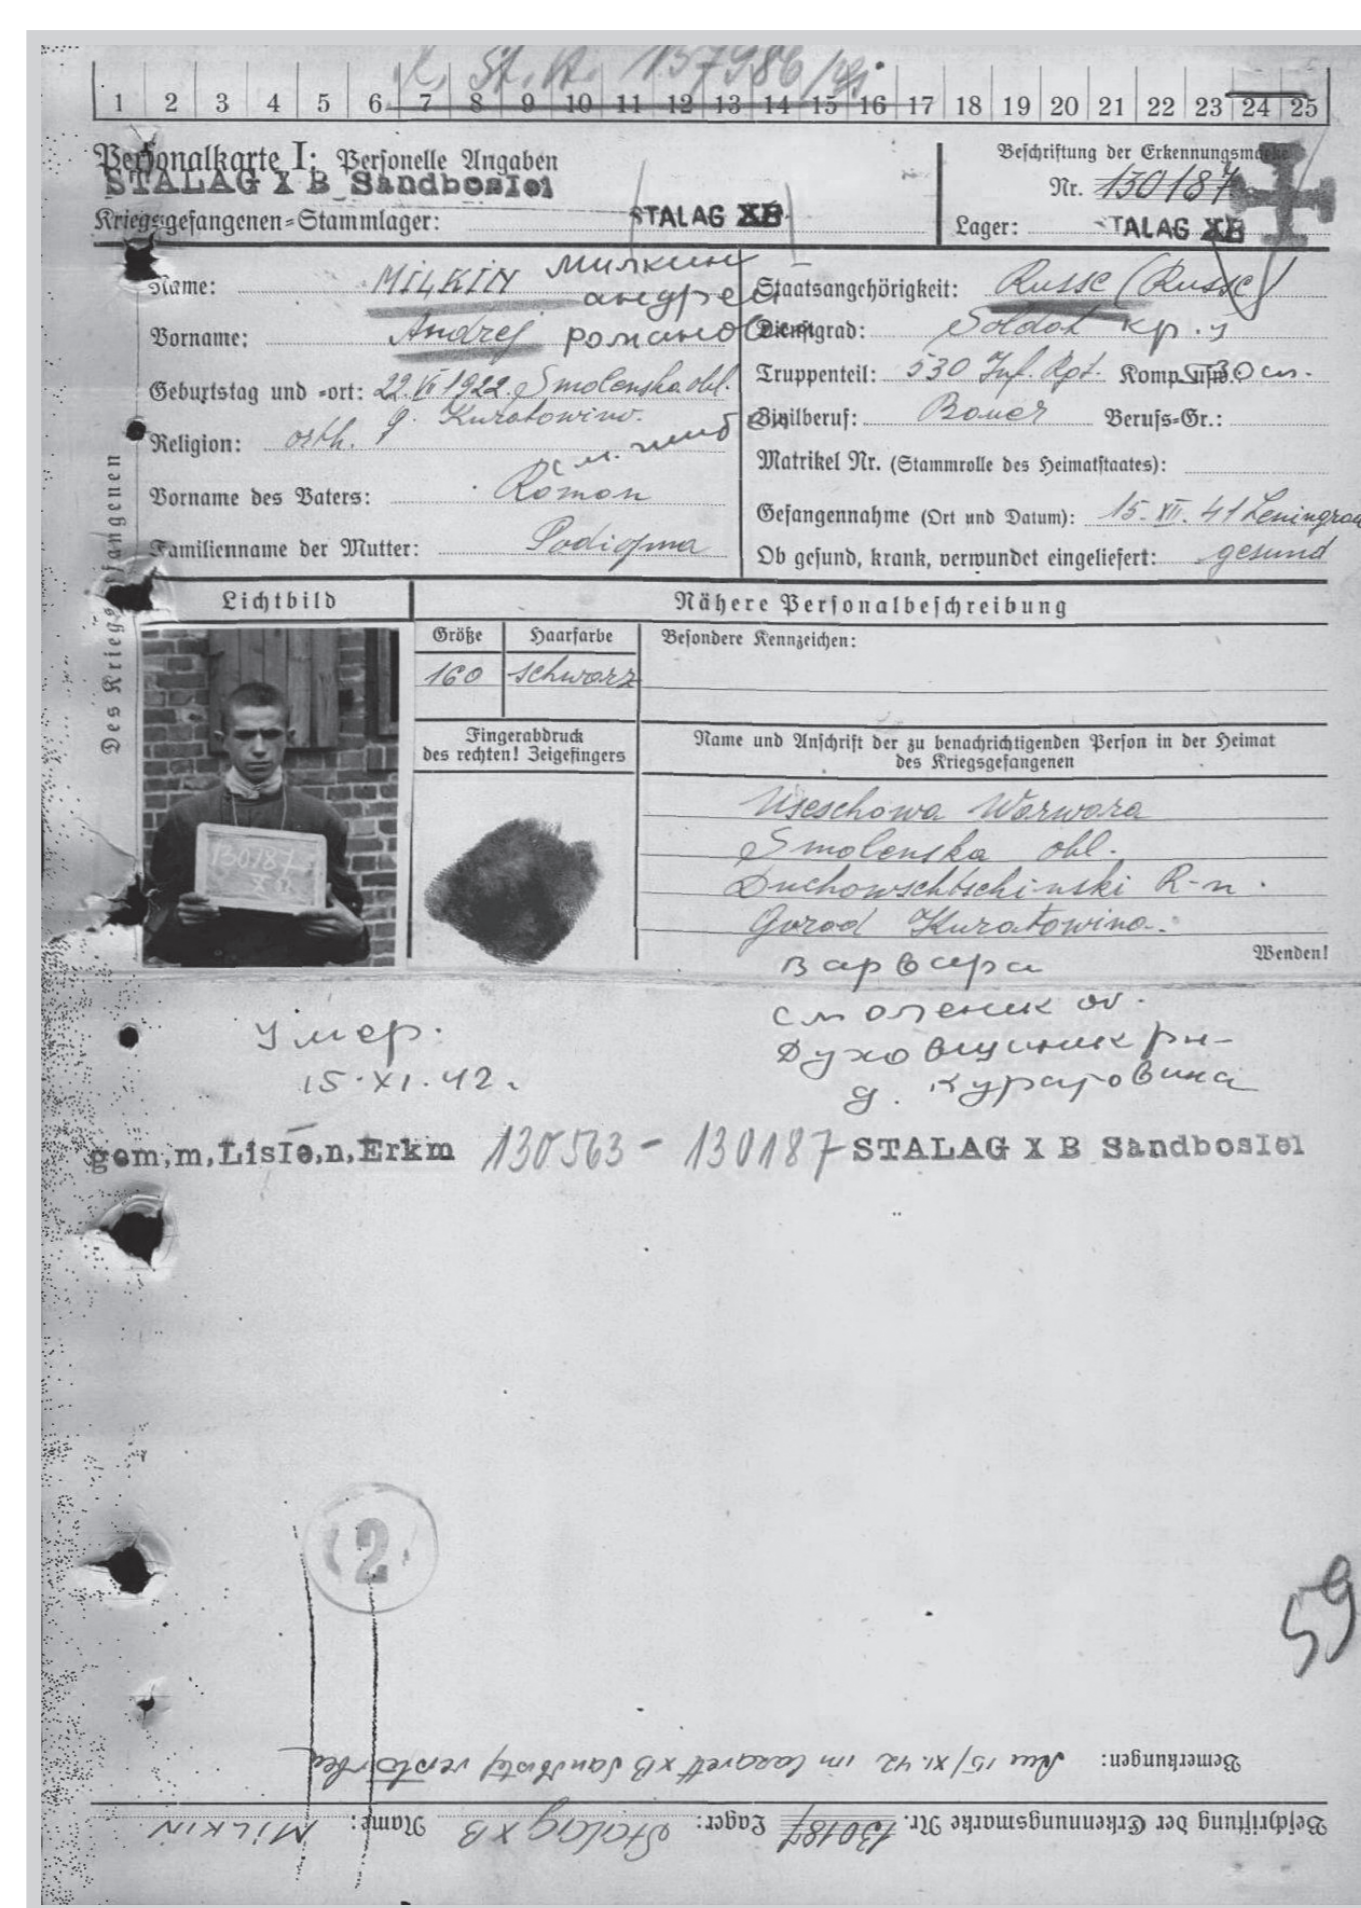 K. St. A. 157986/
1 2 3 4 5 6 7 8 9 10 11 12 13 14 15 16 17 18 19 20 21 22 23 24 25
Personalkarte I: Personelle Angaben
STALAG X B Sandbostel
Kriegsgefangenen-Stammlager: STALAG XB
Beschriftung der Erkennungsmarke
Nr. 130187
Lager: STALAG XB
Des Kriegsgefangenen
Name: MILKIN Милкин
Андрей
Vorname: Andrej Романович
Geburtstag und -ort: 22.VI 1922. Smolenska obl.
g. Kuratowino.
Religion: orth.
Vorname des Vaters: Roman
Familienname der Mutter:
Staatsangehörigkeit: Russe (Russe)
Dienstgrad: Soldat кр.
Truppenteil: 530 Inf. Rgt. Komp. usw.:
Zivilberuf: Bauer Berufs-Gr.:
Matrikel Nr. (Stammrolle des Heimatstaates):
Gefangennahme (Ort und Datum): 15. XII. 41 Leningrad
Ob gesund, krank, verwundet eingeliefert: gesund
Lichtbild
130187
X B
Nähere Personalbeschreibung
Größe Haarfarbe Besondere Kennzeichen:
160 schwarz
Fingerabdruck
des rechten! Zeigefingers
Name und Anschrift der zu benachrichtigenden Person in der Heimat
des Kriegsgefangenen
Useschowa Warwara
Smolenska obl.
Duchowschtschinski R-n.
Gorod Kuratowino.
Wenden!
Варвара
Смоленск об.
Духовщиник рн-
д. Куратовина
Умер.
15.XI.42.
gem,m,Liste,n,Erkm 130563 - 130187 STALAG X B Sandbostel
2
59
Bemerkungen: Am 15/XI.42 im Lazarett XB Sandbostel verstorben
Beschriftung der Erkennungsmarke Nr. 130187 Lager: Stalag XB Name: MILKIN